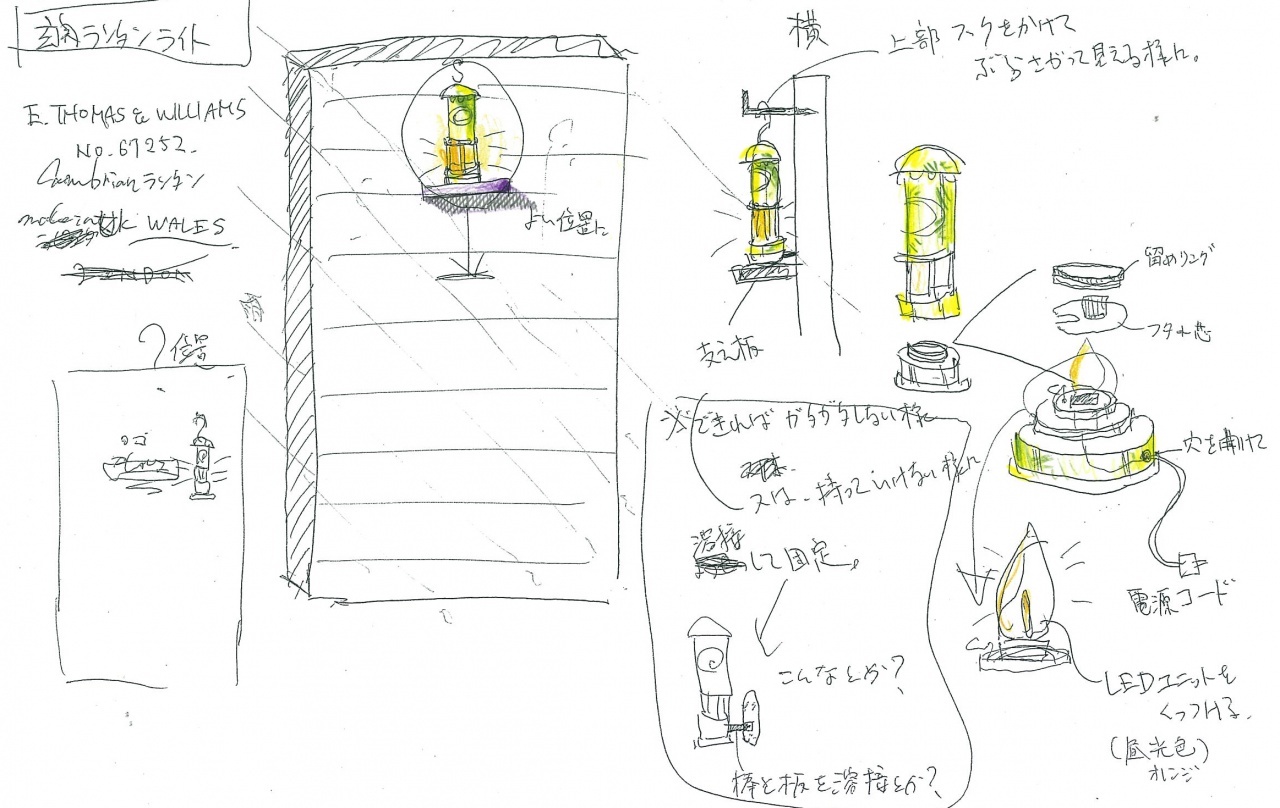 玄関ランタンライト
E. THOMAS & WILLIAMS
NO. 67252.
Cambrianランタン
WALES
S
よい位置に
?位置
ロゴ
横
上部 フックをかけて
ぶらさがって見える様に。
支え板
留めリング
フタと芯
穴を開けて
電源コード
LEDユニットを
くっつける。
(昼光色)
オレンジ
※できれば ガタガタしない様
又は、持っていけない様に
溶接
して固定。
こんなとか?
棒と板を溶接とか?